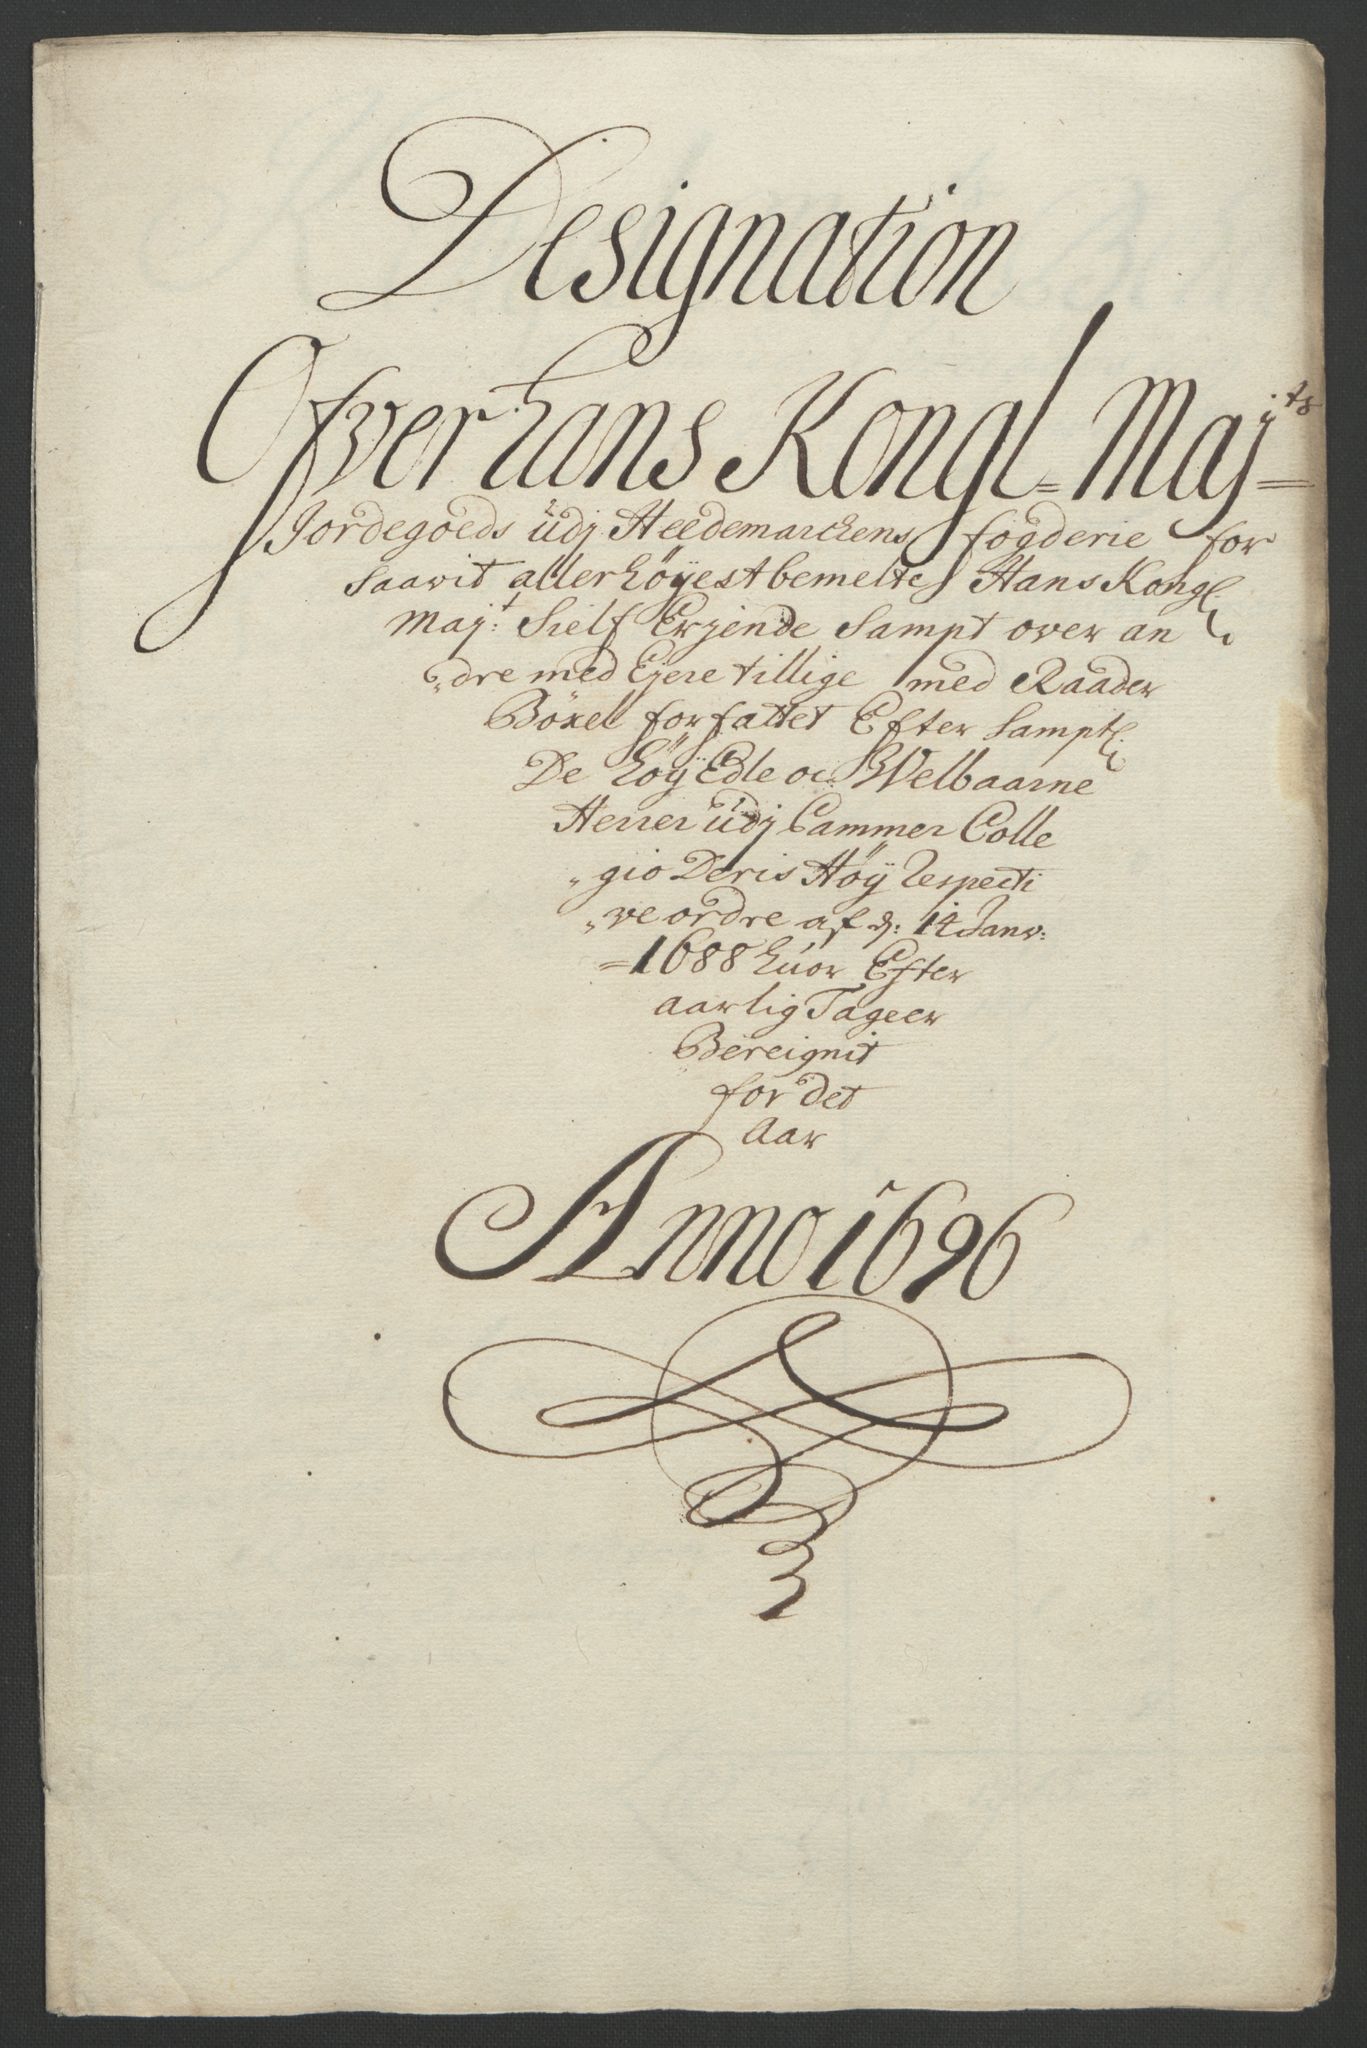 Designation
Ofver hans Kongl= Maj=ts
Jordegoeds üdj Heedemarckens fogderie for
saavit allerhöÿestbemelte Hans Kongl:
Maj:t Sielf Erjende Sampt over an
„dre med Ejere tillige med Raader
Böxel forfattet Efter Sampt:
De höÿEdle oc Welbaarne
Herrer üdj Cammer Colle
„gio Deris Höÿ Respecti
„ve ordre af d: 14 Janv:
=1688 huor Efter
aarlig Tageer
Bereignit
for det
Aar
Anno 1696